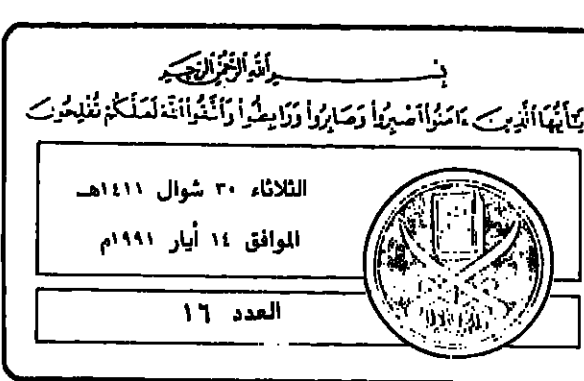 بسم الله الرحمن الرحيم
يَٰٓأَيُّهَا ٱلَّذِينَ ءَامَنُوا۟ ٱصْبِرُوا۟ وَصَابِرُوا۟ وَرَابِطُوا۟ وَٱتَّقُوا۟ ٱللَّهَ لَعَلَّكُمْ تُفْلِحُونَ
الثلاثاء ٣٠ شوال ١٤١١هـ
الموافق ١٤ أيار ١٩٩١م
العدد ١٦